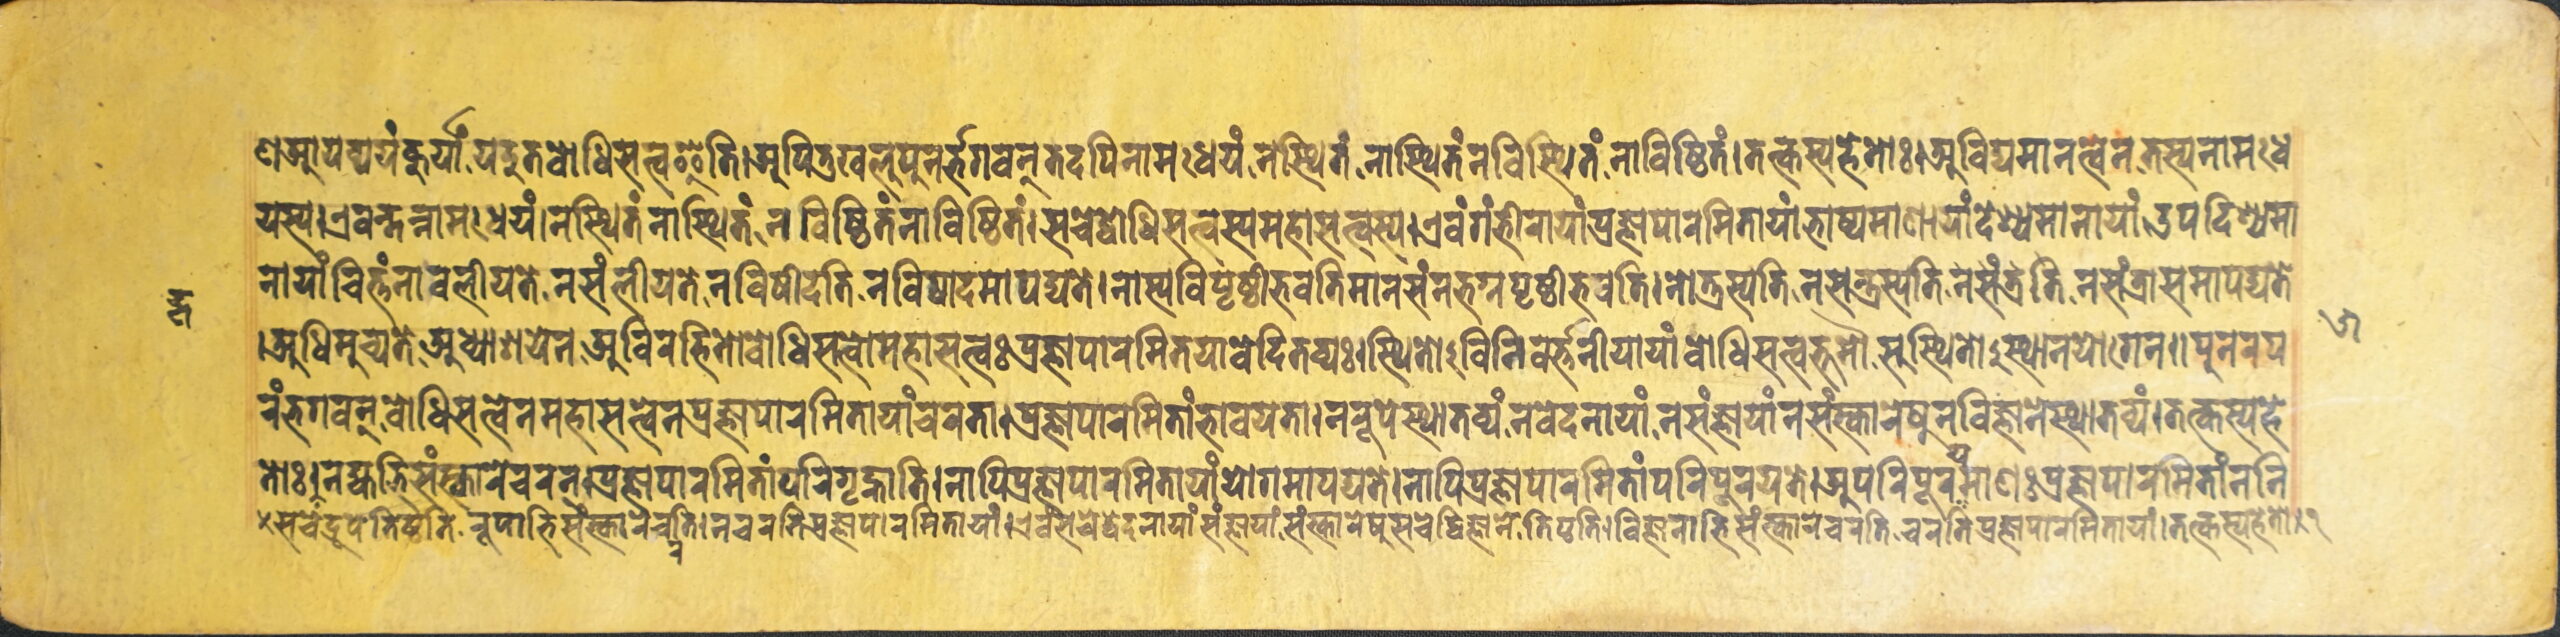 ण आयव्ययं कुर्यां यदुत बोधिसत्व इति । अपि तु खलु पुनर्भगवन् तदपि नामःधेयं न स्थितं नास्थितं न विस्थितं नाविष्ठितं । तत्कस्य हेतोः । अविद्यमानत्वेन तस्य नामःधे
यस्य । एवन्तन्नामःधेयं । न स्थितं नास्थितं न विष्ठितं नाविष्ठितं । सचेद्बोधिसत्वस्य महासत्वस्य । एवं गंभीरायां प्रज्ञापारमितायां भाष्यमाणायां देश्यमानायां उपदिश्यमा
नायां चित्तं नावलीयते न संलीयते न विषीदति न विषादमापद्यते । नास्य विपृष्ठीभवति मानसं न भग्नपृष्ठीभवति । नोत्रस्यति न सन्त्रस्यति न संत्रति न संत्रासमापद्यते
। अधिमुच्यते अध्याशयेन अविरहितो बोधिसत्वो महासत्वः प्रज्ञापारमितया वेदितव्यः । स्थितो ऽविनिवर्त्तनीयायां बोधिसत्वभूमौ सुस्थितो ऽस्थानयोगेन ॥ पुनरप
रं भगवन् बोधिसत्वेन महासत्वेन प्रज्ञापारमितायां चरता । प्रज्ञापारमितां भावयता । न रूपे स्थातव्यं न वेदनायां न संज्ञायां न संस्कारेषु न विज्ञाने स्थातव्यं । तत्कस्य हे
तोः । न ह्यभिसंस्कारे चरन् । प्रज्ञापारमितां परिगृह्णाति । नापि प्रज्ञापारमितायां योगमापद्यते । नापि प्रज्ञापारमितां परिपूरयते । अपरिपूरयमाणः प्रज्ञापारमितां न नि
× सचेद्रूपे तिष्ठति रूपाभिसंस्कारे चरति । न चरति प्रज्ञापारमितायां । एवं सचेद्वेदनायां संज्ञायां संस्कारेषु सचेद्विज्ञाने तिष्ठति । विज्ञानाभिसंस्कारे चरति चरति प्रज्ञापारमितायां । तत्कस्य हेतो ।